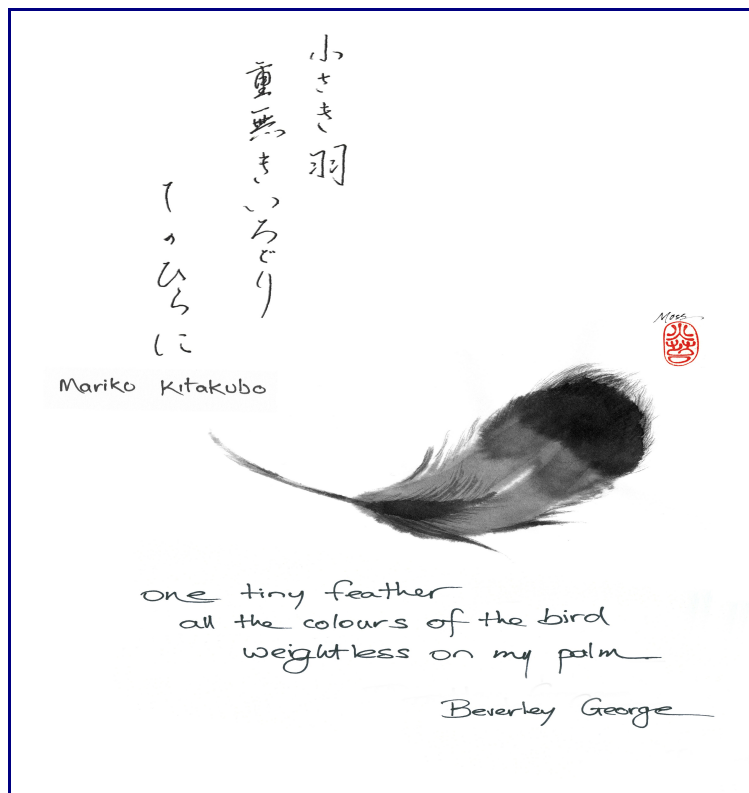 小さき羽
重無きいろどり
てのひらに
Mariko Kitakubo
Moss
one tiny feather
all the colours of the bird
weightless on my palm
Beverley George